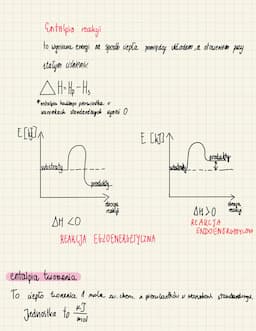 Entalpia reakcji
to wymiana energii na sposób ciepła pomiędzy układem a otoczeniem przy
stałym ciśnieniu
△H = Hp - Hs
*entalpia każdego pierwiastka w
warunkach standardowych wynosi 0
E [kJ]
substraty
produkty
droga
reakcji
ΔH < 0
REAKCJA EGZOENERGETYCZNA
E [kJ]
substraty
produkty
droga
reakcji
ΔH > 0
REAKCJA
entalpia tworzenia
To ciepło tworzenia 1 mola zw. chem. z pierwiastków w warunkach standardowych.
Jednostka to kJ
mol